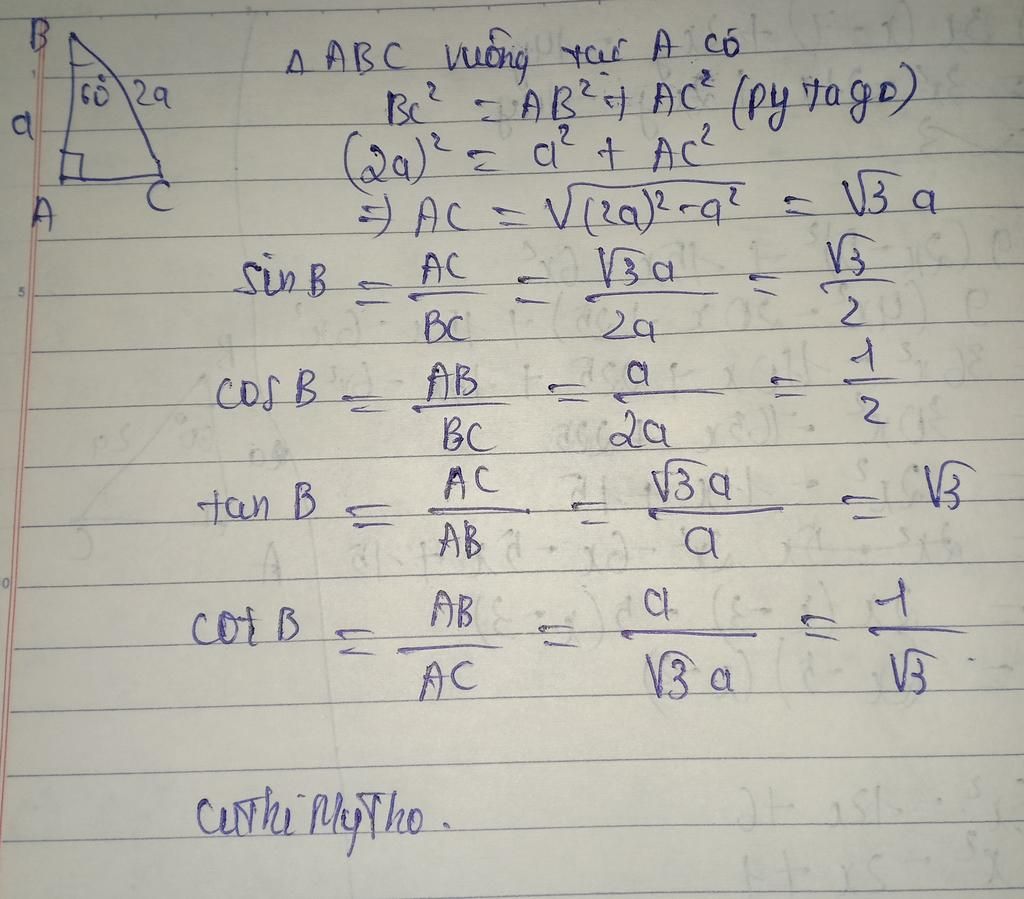 B
60° 2a
a
A C
△ ABC vuông tại A có
BC² = AB² + AC² (pytago)
(2a)² = a² + AC²
=> AC = √((2a)² - a²) = √3 a
sin B = AC/BC = √3a/2a = √3/2
cos B = AB/BC = a/2a = 1/2
tan B = AC/AB = √3a/a = √3
cot B = AB/AC = a/√3a = 1/√3